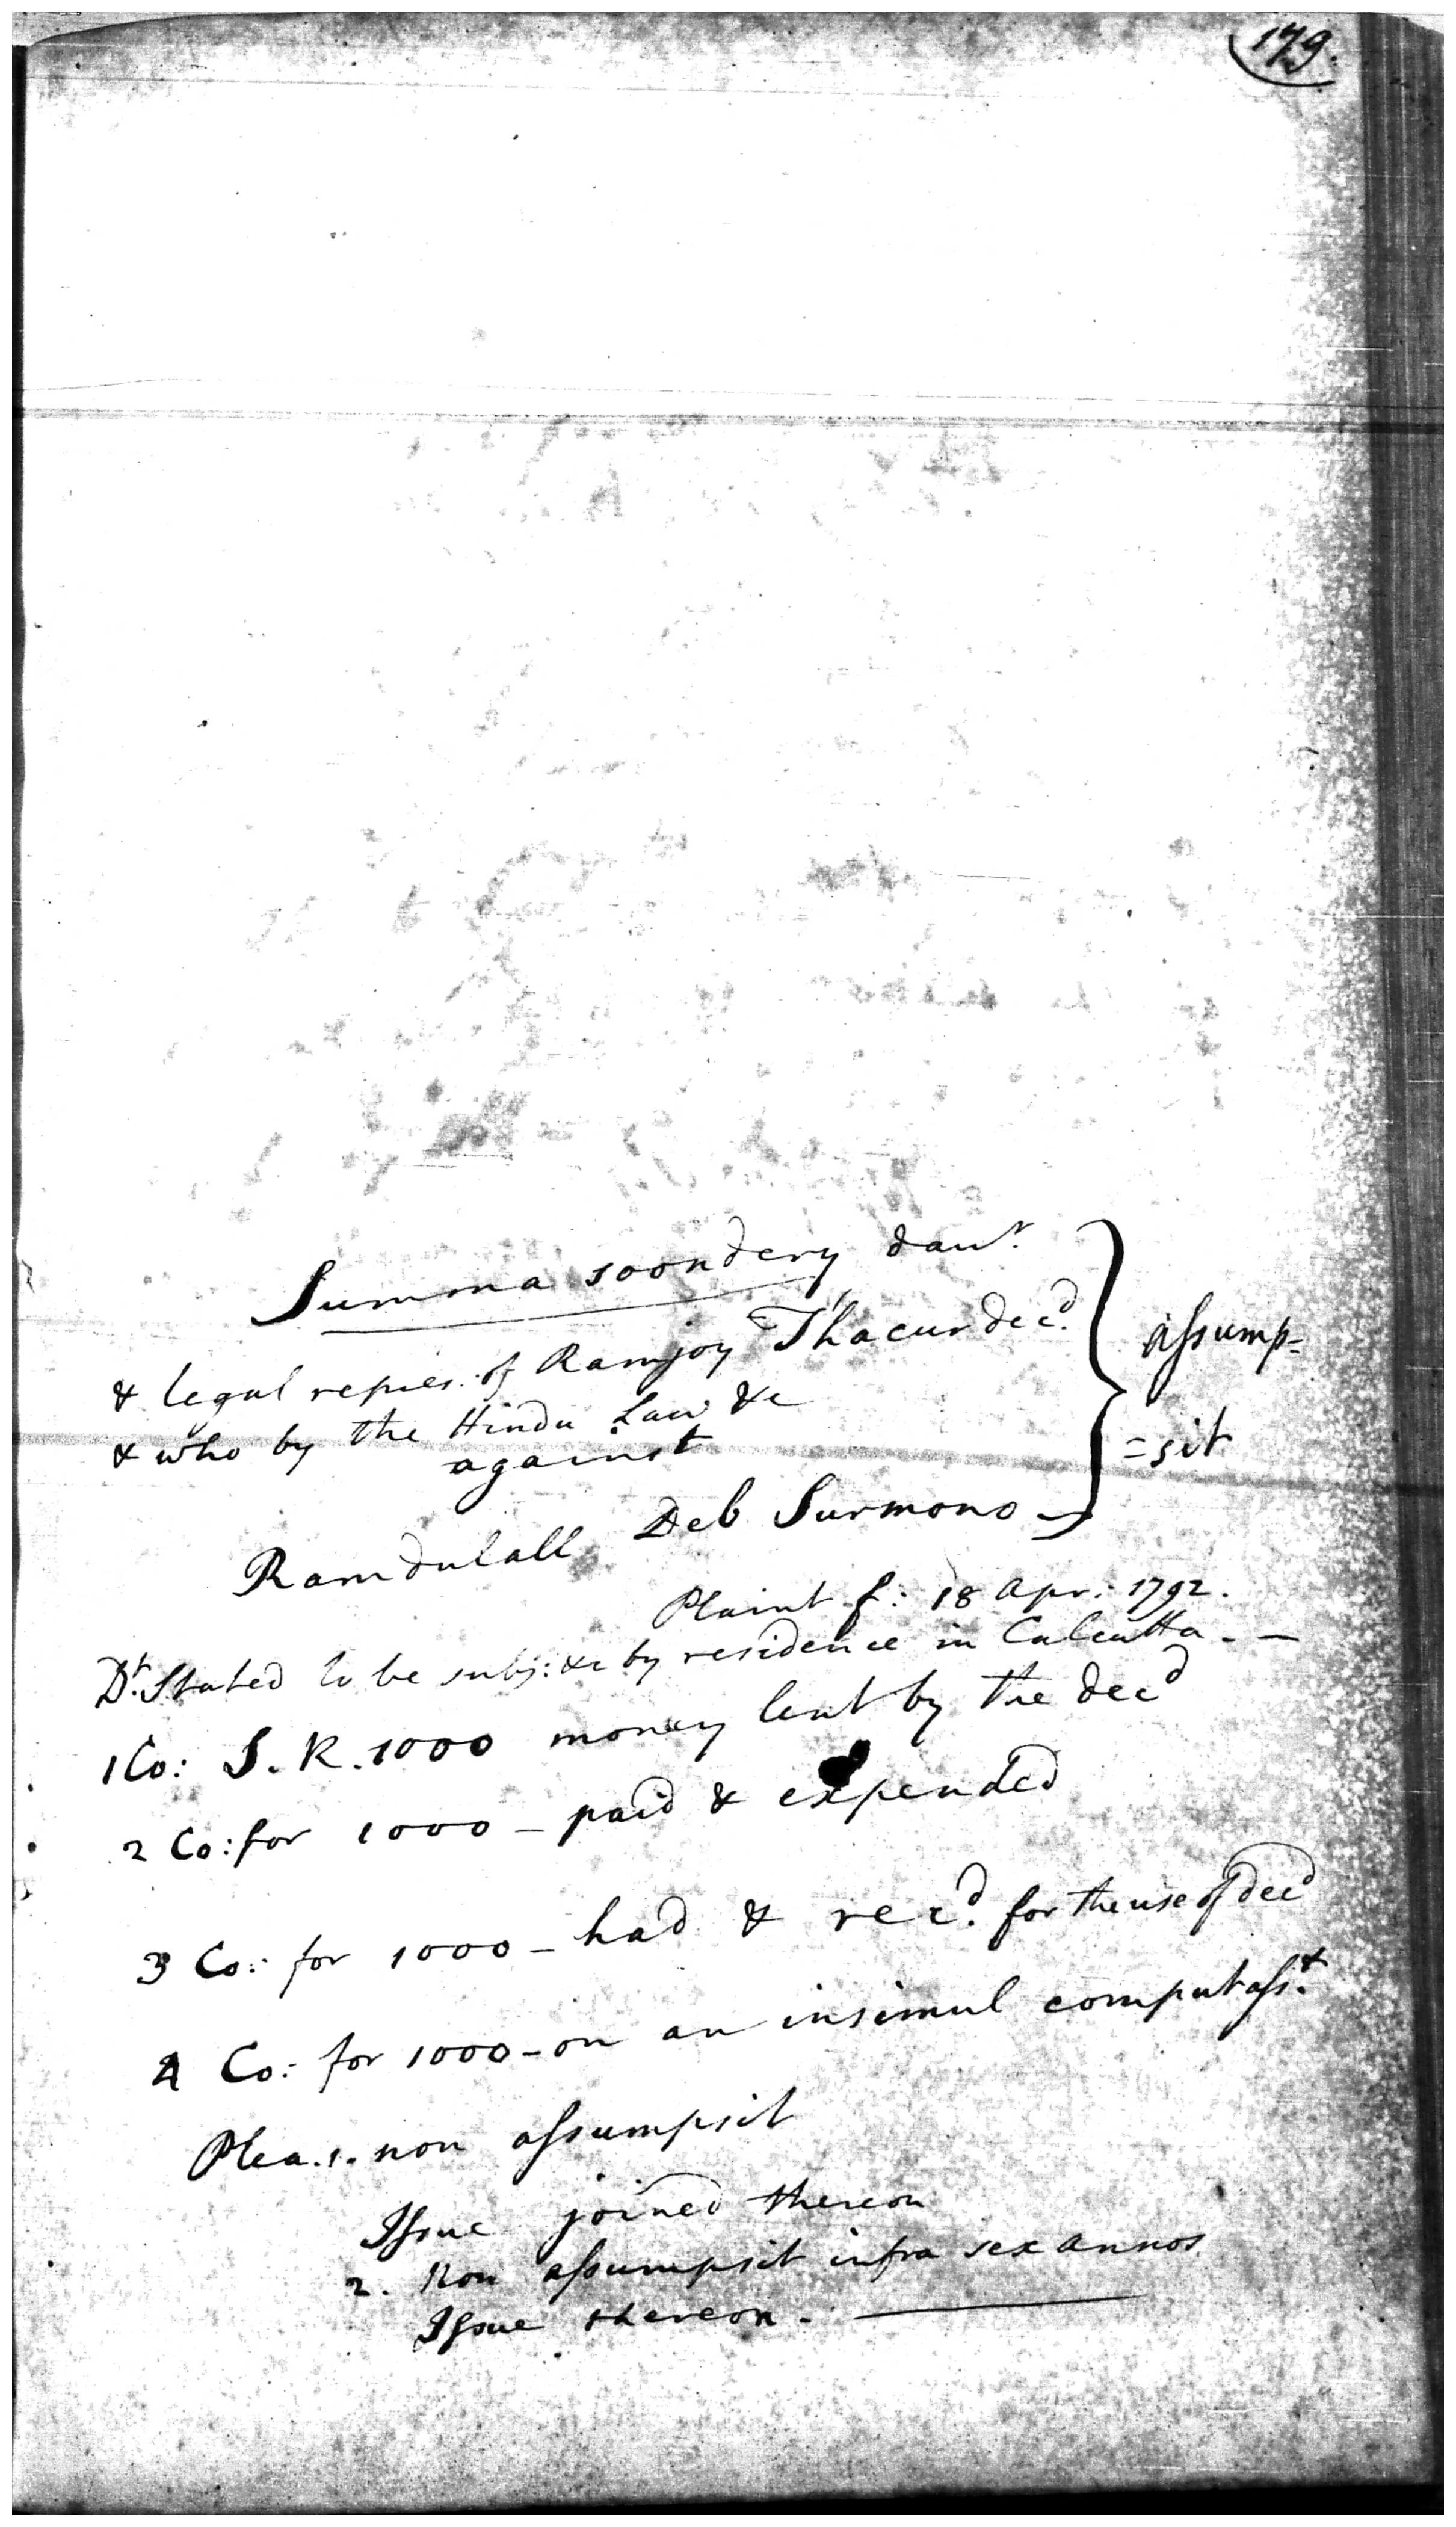 179.
Summa soondery dau.r
& legal repres: of Ramjoy Thacur dec.d
& who by the Hindu Law &c
against
assump=
=sit
Ramdulall Deb Surmono
Plaint f: 18 Apr: 1792.
D.t Stated to be subj: &c by residence in Calcutta. —
1 Co: S. R. 1000 money lent by the decd
2 Co: for 1000 – paid & expended
3 Co: for 1000 – had & rec.d for the use of decd
4 Co: for 1000 – on an insimul computass.t
Plea. 1. non assumpsit
Issue joined thereon
2. Non assumpsit infra sex annos
Issue thereon. —